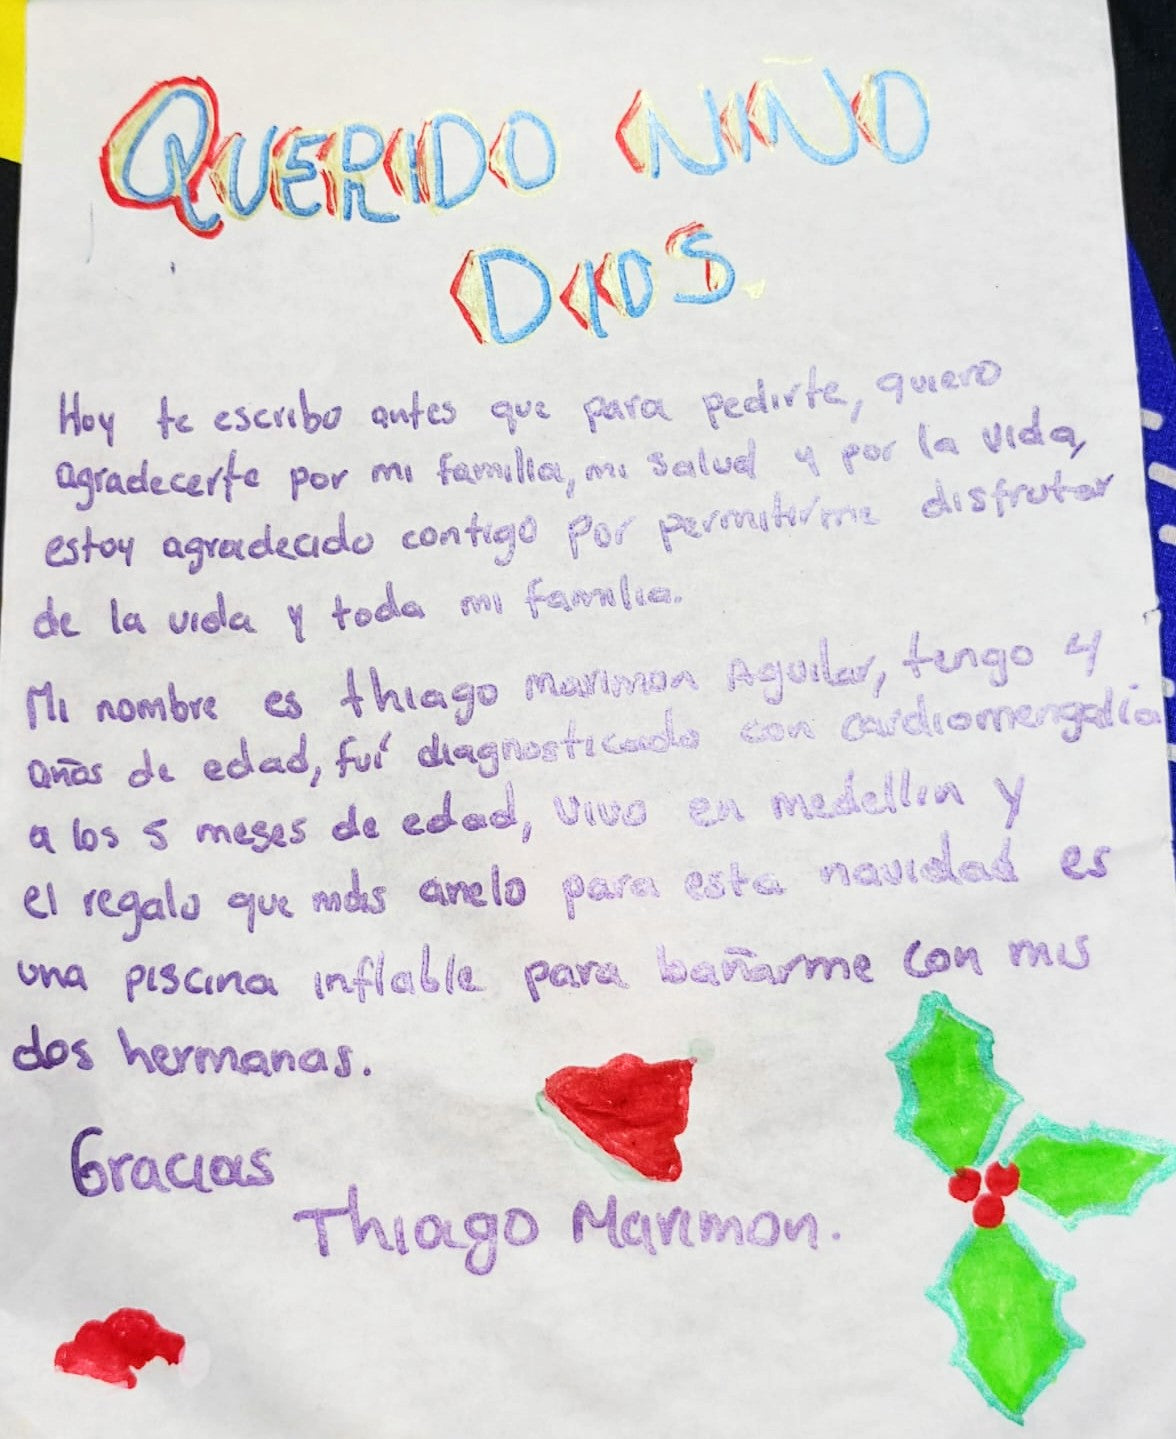 QUERIDO NIÑO
DIOS.
Hoy te escribo antes que para pedirte, quiero
agradecerte por mi familia, mi salud y por la vida,
estoy agradecido contigo por permitirme disfrutar
de la vida y toda mi familia.
Mi nombre es thiago marimon Aguilar, tengo 4
años de edad, fuí diagnosticado con cardiomengalia
a los 5 meses de edad, vivo en medellin y
el regalo que más anelo para esta navidad es
una piscina inflable para bañarme con mis
dos hermanas.
Gracias
Thiago Marimon.